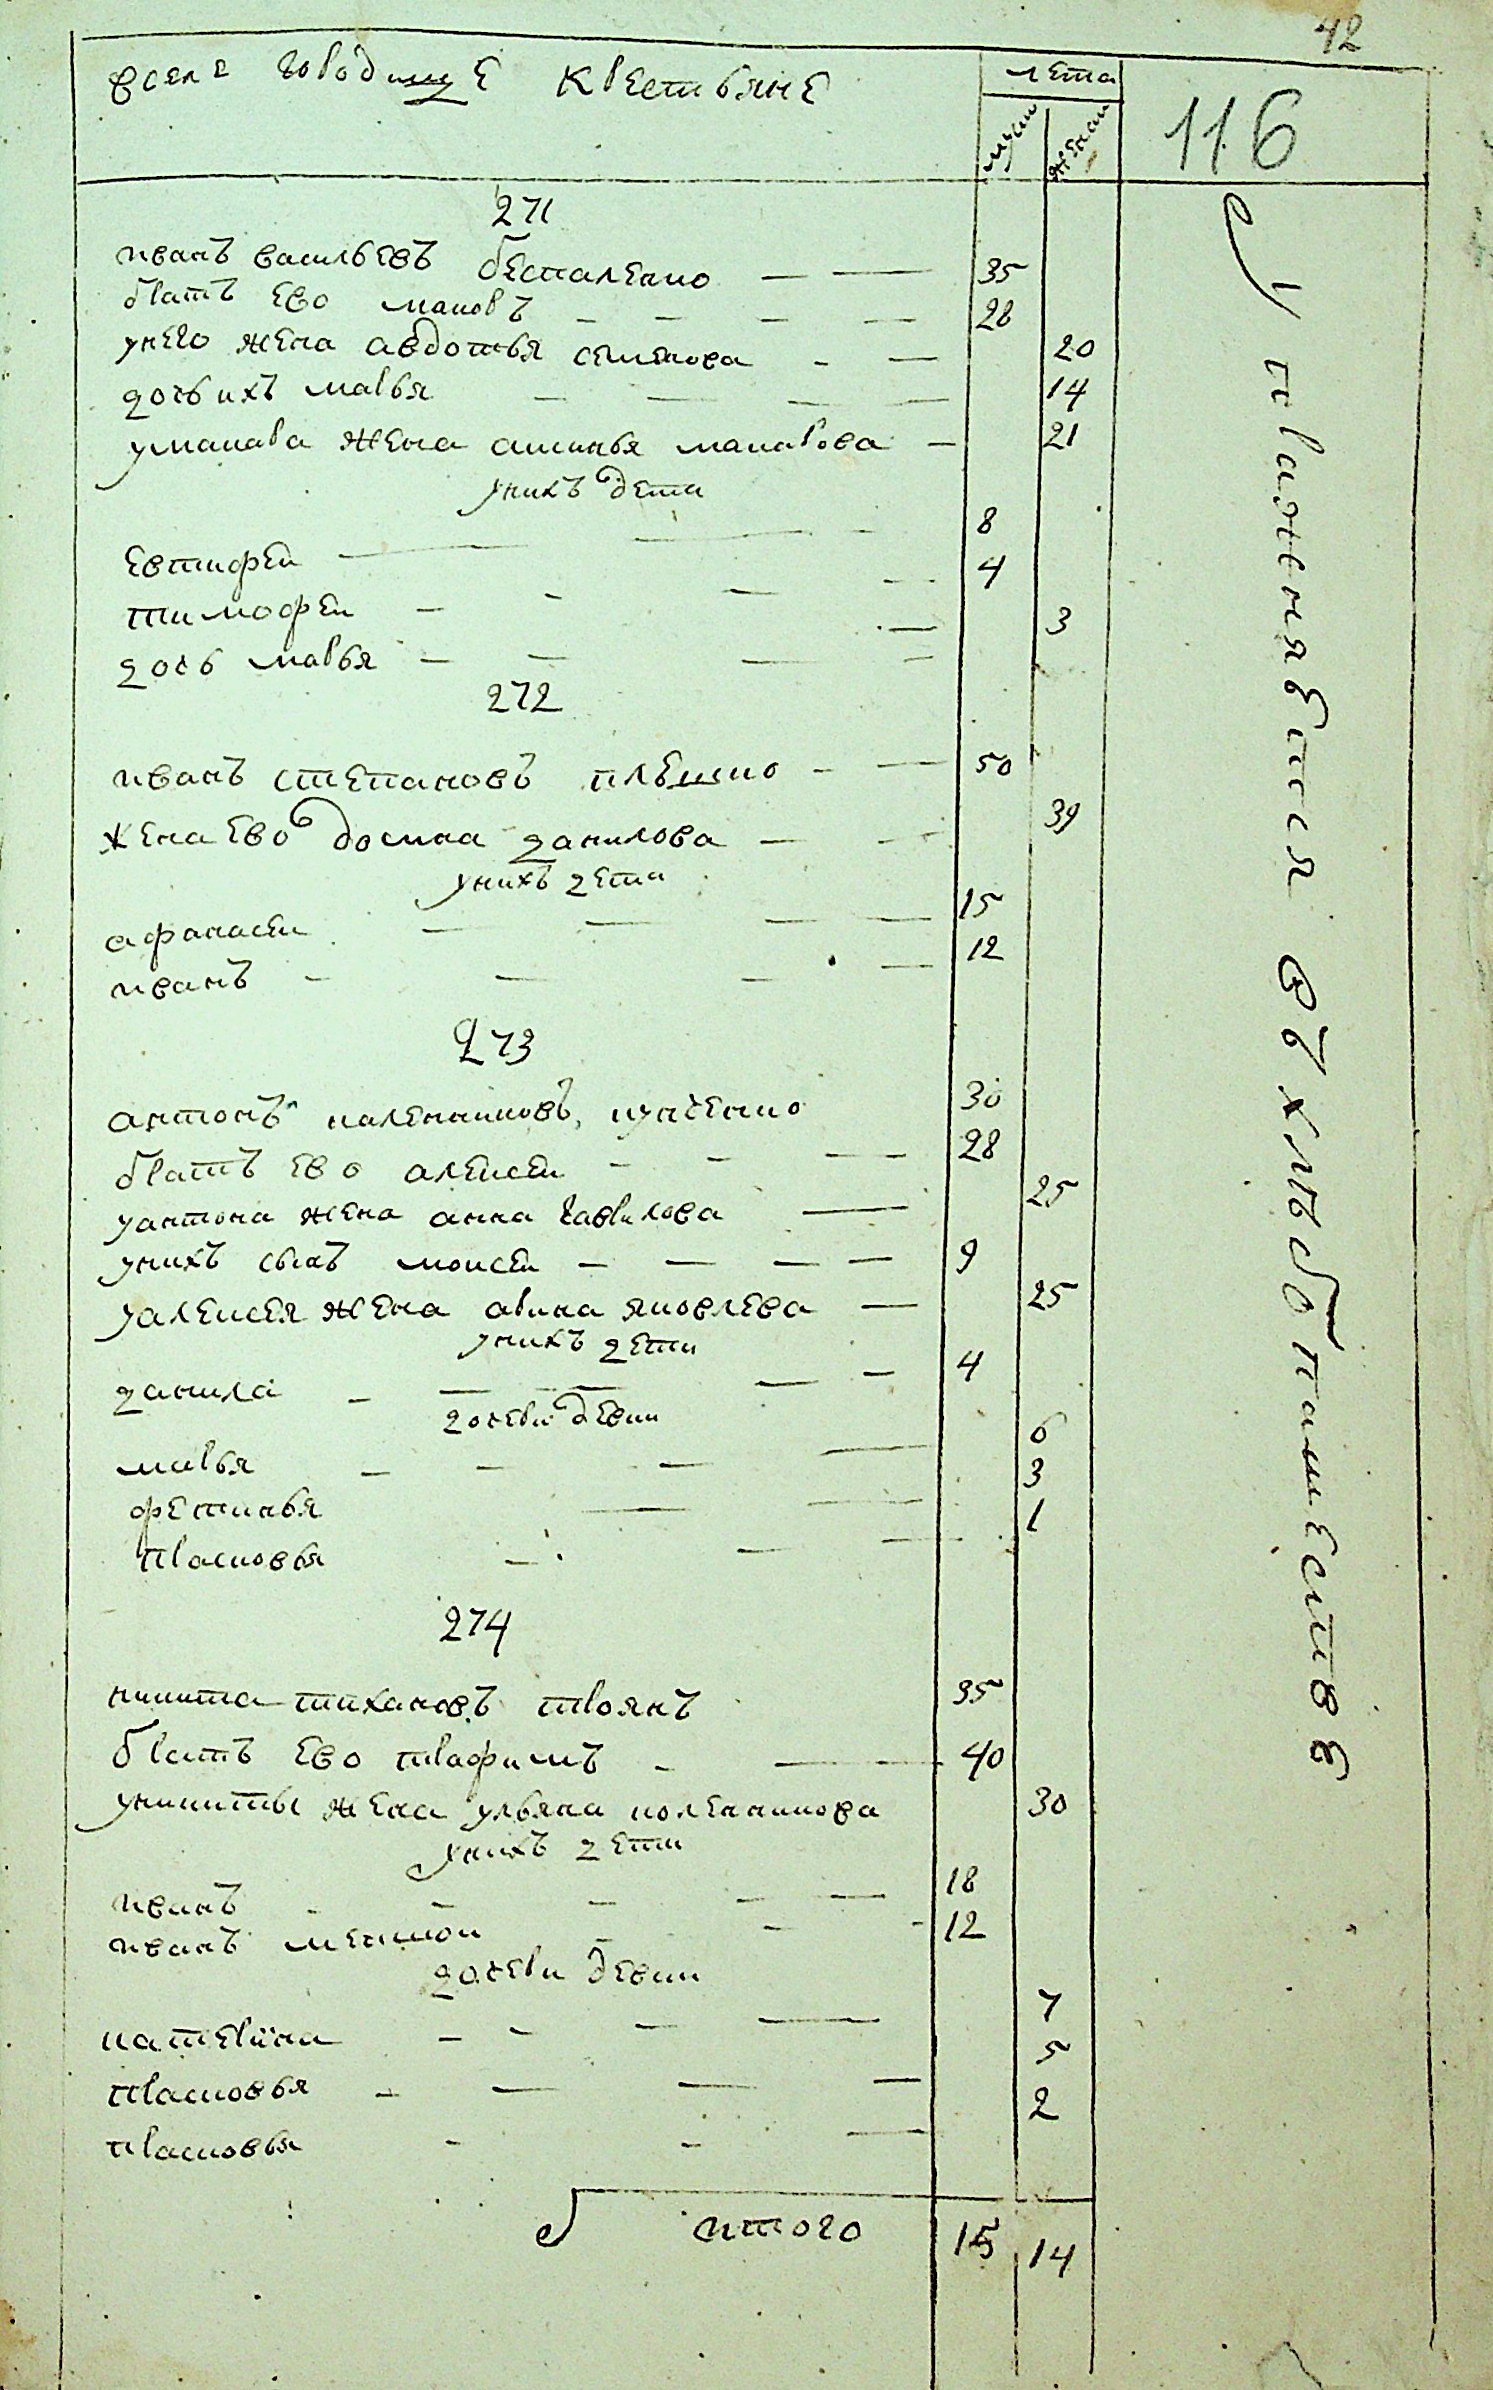 42
всел: городище крестьяне
лета
муж
женск
116
271
иванъ васильевъ беспаленко 35
братъ ево маковъ 28
унего жена авдотья семенова 20
дочь ихъ марья 14
умакара жена аксинья макарова 21
унихъ дети
евтифеи 8
тимофеи 4
дочь марья 3
272
иванъ степановъ 50
жена ево домна данилова 39
унихъ дети
афанасеи 15
иванъ 12
273
антонъ каленниковъ 30
братъ ево алексеи 28
уантона жена анна гаврилова 25
унихъ сынъ моисеи 9
уалексея жена арина яковлева 25
унихъ дети
данила 4
дочери девки
марья 6
фетинья 3
прасковья 1
274
никита тихановъ троянъ 35
братъ ево трафимъ 40
уникиты жена ульяна коленникова 30
унихъ дети
иванъ 18
иванъ меншои 12
дочери девки
катерина 7
прасковья 5
прасковья 2
итого 15 14
упражняются въ хлебопашестве